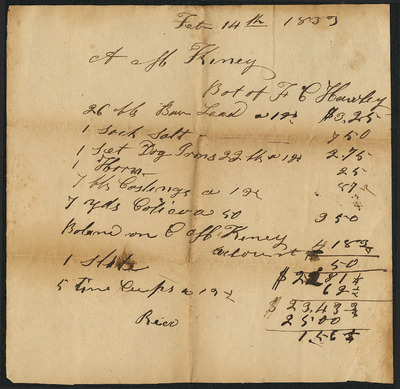 Feb 14th 1839
A M Kiney
Bot of F C Hawley
26 lb Bar Lead a 12½ $3.25
1 Sack Salt - 7 50
1 Set Dog Irons 22 lb a 12½ 2.75
1 25
7 lb Castings a 12½ 87½
7 yds 50 3 50
Balance on C M Kiney
account 4 18¾
1 50
$ 22 81¼
5 Tin Cups a 12½ 62½
$ 23.43¾
Recd 25 00
1.56¼